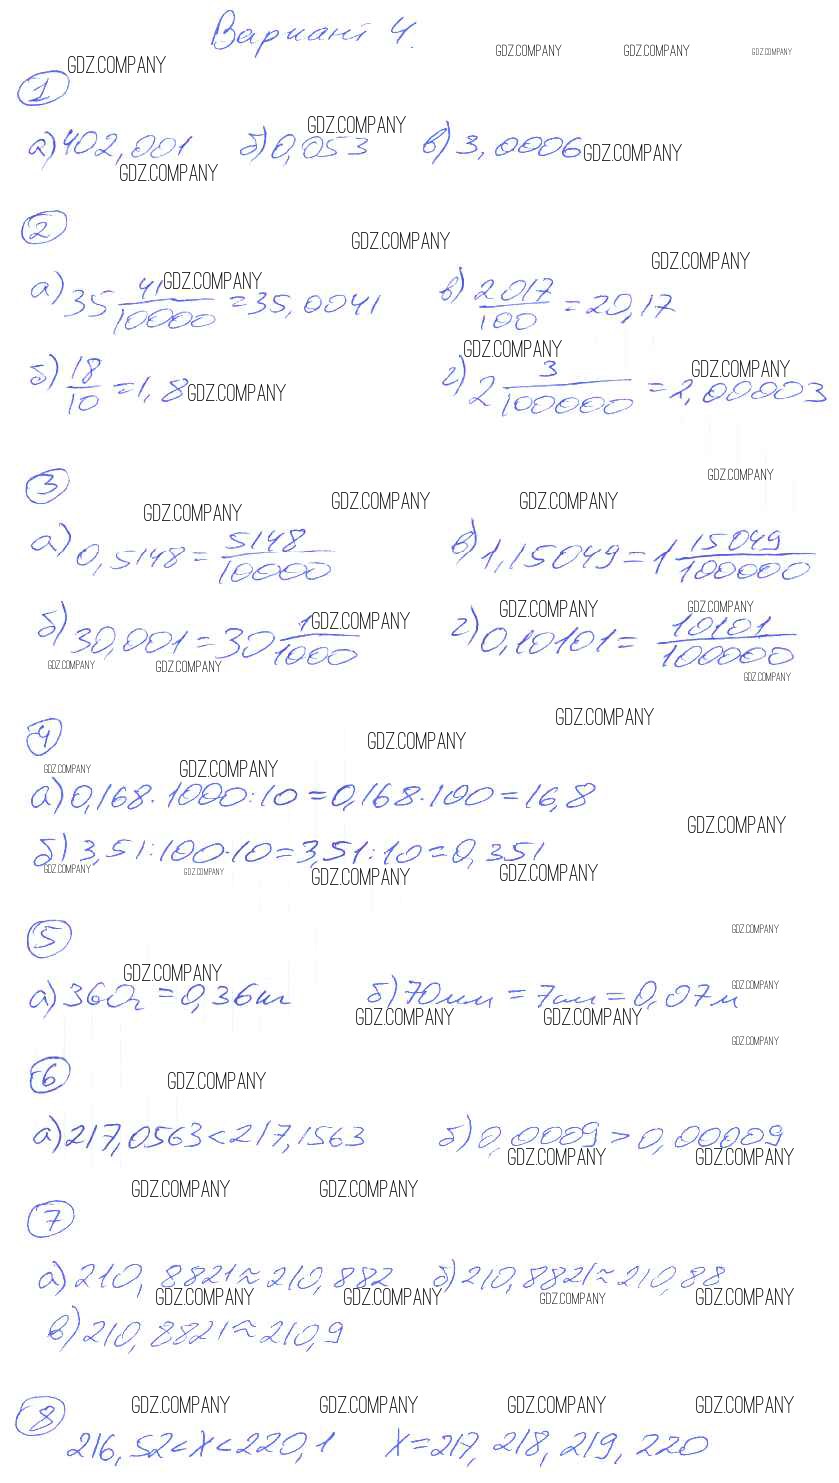 Вариант 4.
GDZ.COMPANY GDZ.COMPANY GDZ.COMPANY
GDZ.COMPANY
1
GDZ.COMPANY
а) 402,001 б) 0,053 в) 3,0006 GDZ.COMPANY
GDZ.COMPANY
2
GDZ.COMPANY
GDZ.COMPANY
а) 35 41/10000 = 35,0041 в) 2017/100 = 20,17
GDZ.COMPANY
GDZ.COMPANY
б) 18/10 = 1,8 г) 2 3/100000 = 2,00003
GDZ.COMPANY GDZ.COMPANY
3
GDZ.COMPANY
GDZ.COMPANY GDZ.COMPANY GDZ.COMPANY
а) 0,5148 = 5148/10000 в) 1,15049 = 1 15049/100000
GDZ.COMPANY GDZ.COMPANY GDZ.COMPANY
б) 30,001 = 30 1/1000 г) 0,10101 = 10101/100000
GDZ.COMPANY GDZ.COMPANY GDZ.COMPANY
GDZ.COMPANY
4
GDZ.COMPANY
GDZ.COMPANY GDZ.COMPANY
а) 0,168·1000:10 = 0,168·100 = 16,8
GDZ.COMPANY
б) 3,51:100·10 = 3,51:10 = 0,351
GDZ.COMPANY GDZ.COMPANY GDZ.COMPANY GDZ.COMPANY
5
GDZ.COMPANY
GDZ.COMPANY GDZ.COMPANY
а) 360г = 0,36кг б) 70мм = 7см = 0,07м
GDZ.COMPANY GDZ.COMPANY
GDZ.COMPANY
6
GDZ.COMPANY
а) 217,0563 < 217,1563 б) 0,0009 > 0,00009
GDZ.COMPANY GDZ.COMPANY
GDZ.COMPANY GDZ.COMPANY
7
а) 210,8821 ≈ 210,882 б) 210,8821 ≈ 210,88
GDZ.COMPANY GDZ.COMPANY GDZ.COMPANY GDZ.COMPANY
в) 210,8821 ≈ 210,9
8
GDZ.COMPANY GDZ.COMPANY GDZ.COMPANY GDZ.COMPANY
216,52 < x < 220,1 x = 217, 218, 219, 220